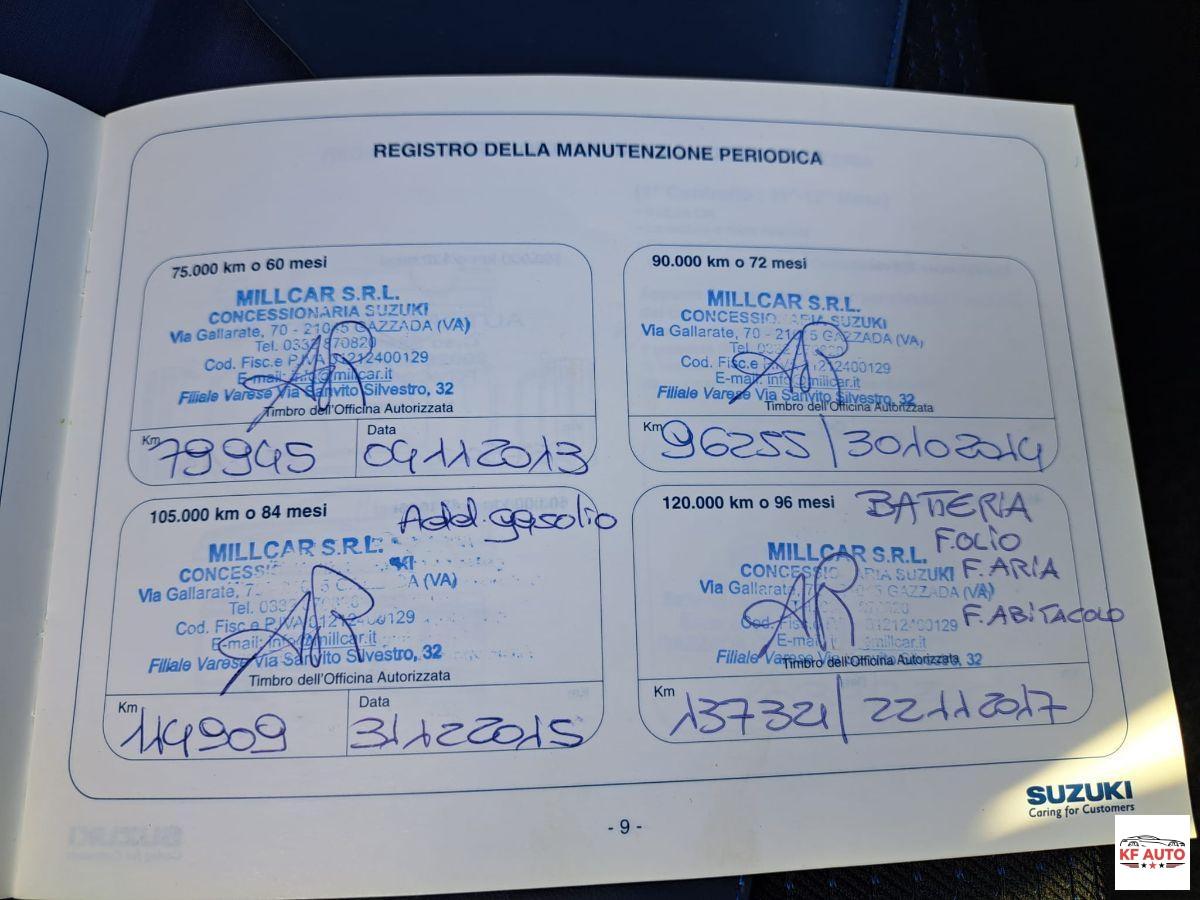 REGISTRO DELLA MANUTENZIONE PERIODICA
75.000 km o 60 mesi
MILLCAR S.R.L.
CONCESSIONARIA SUZUKI
Via Gallarate, 70 - 21045 GAZZADA (VA)
Tel. 0332 870820
Cod. Fisc.e P.IVA 01212400129
E-mail: info@millcar.it
Filiale Varese Via Sanvito Silvestro, 32
Timbro dell'Officina Autorizzata
Km 79945
Data 04112013
90.000 km o 72 mesi
MILLCAR S.R.L.
CONCESSIONARIA SUZUKI
Via Gallarate, 70 - 21045 GAZZADA (VA)
Tel. 0332 870820
Cod. Fisc.e P.IVA 01212400129
E-mail: info@millcar.it
Filiale Varese Via Sanvito Silvestro, 32
Timbro dell'Officina Autorizzata
Km 96255 / 30102014
105.000 km o 84 mesi
Add. gasolio
MILLCAR S.R.L.
(VA)
Via Gallarate,
Tel. 0332
Cod. Fisc.e P.IVA 01212400129
E-mail: info@millcar.it
Filiale Varese Via Sanvito Silvestro, 32
Timbro dell'Officina Autorizzata
Km 114909
Data 31122015
120.000 km o 96 mesi
BATTERIA
F.OLIO
F.ARIA
F.ABITACOLO
MILLCAR S.R.L.
CONCESSIONARIA SUZUKI
Via Gallarate, GAZZADA (VA)
Cod. Fisc.e 01212400129
E-mail: millcar.it
Filiale Varese 32
Timbro dell'Officina Autorizzata
Km 137321 / 22112017
SUZUKI
Caring for Customers
- 9 -
KF AUTO